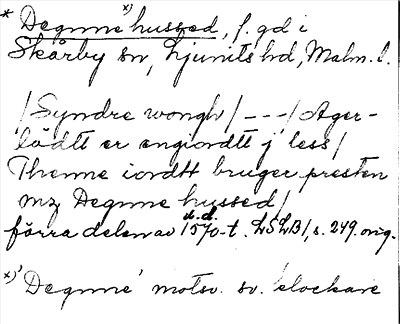 * Degnne x) hussed, f. gd i
Skårby sn, Ljunits hd, Malm. l.
/Syndre wongh/ --- / Ager-
lådtt er angiordtt j less/
Thenne iordtt bruger presten
mz Degnne hussed/
förra delen av 1570-t. LSLB/, s. 249. orig.
d.d.
x) 'Degnne' motsv. sv. klockare